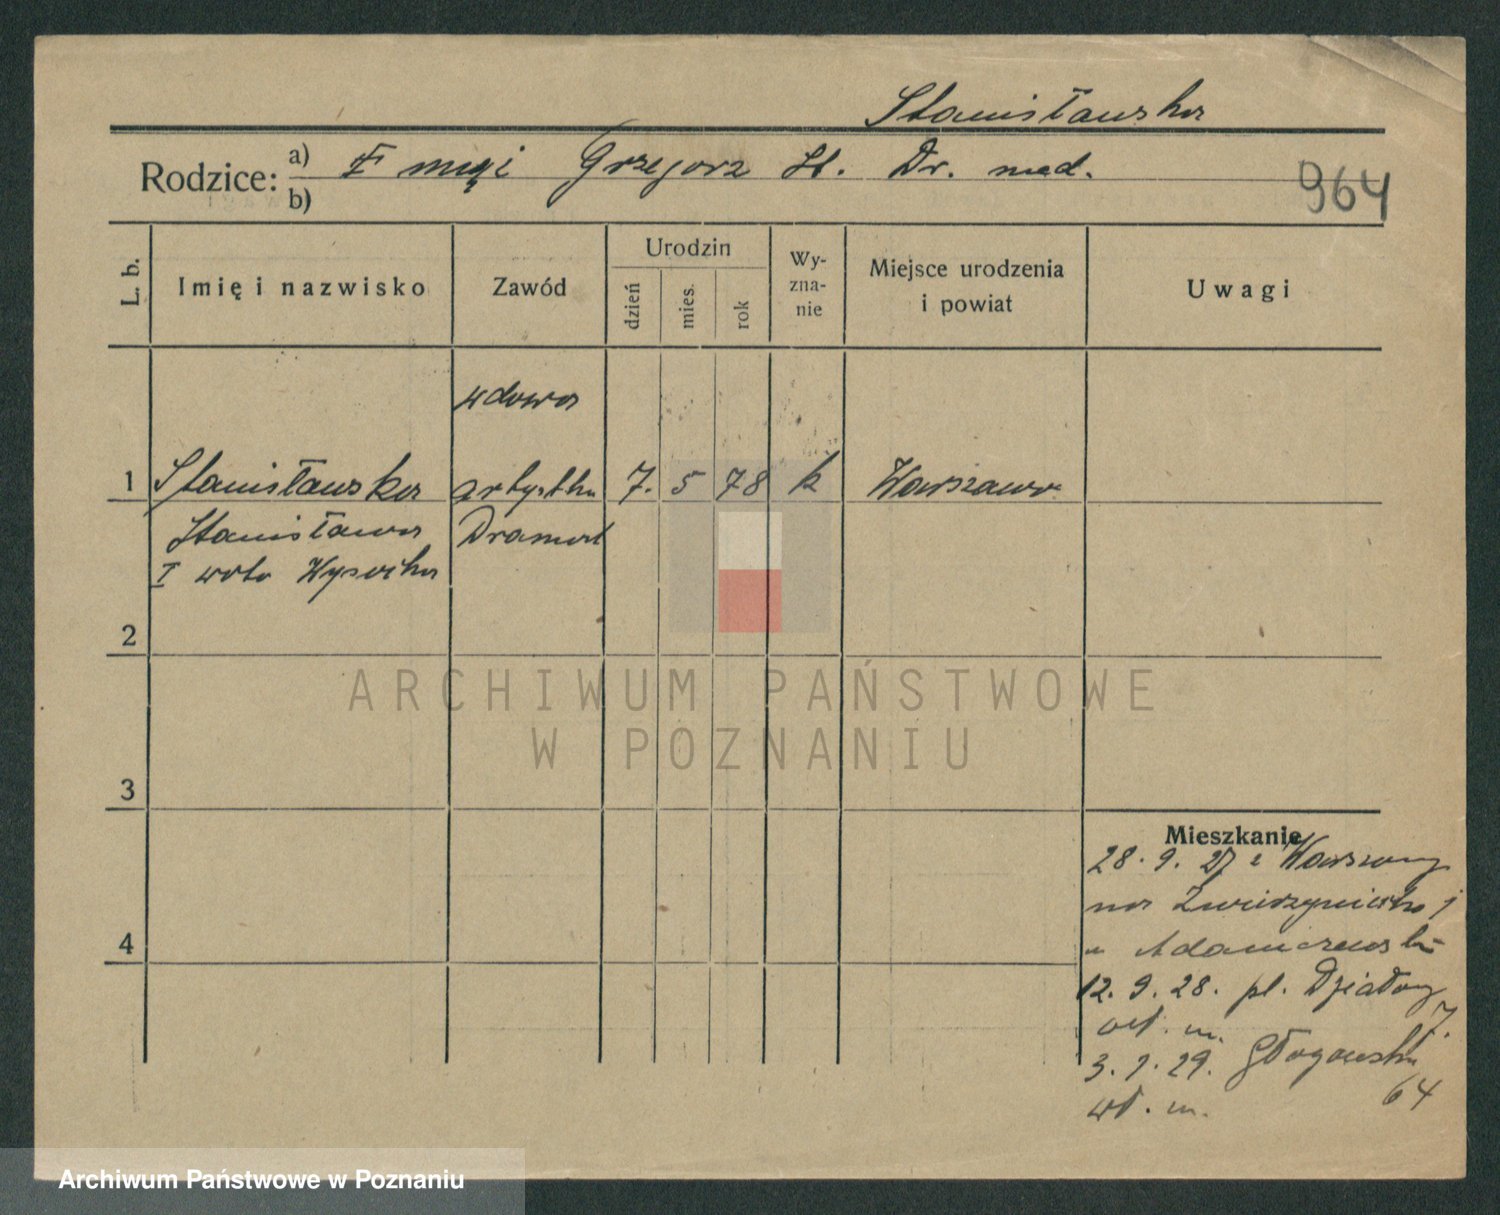 Stanisławska
Rodzice: a) II mąż Grzegorz St. Dr. med.
b)
964
L. b. Imię i nazwisko Zawód Urodzin dzień mies. rok Wyznanie Miejsce urodzenia i powiat Uwagi
wdowa
1 Stanisławska artystka 7. 5 78 k Warszawa
Stanisława Dramat
I voto Wysocka
2
3
4
Mieszkanie
28. 9. 27 z Warszawy
na Zwierzyniecka 1
u Adamczewski
12. 9. 28. pl. Działowy 7.
wł. m.
3. 1. 29. Głogowska 64
wł. m.
ARCHIWUM PAŃSTWOWE
W POZNANIU
Archiwum Państwowe w Poznaniu